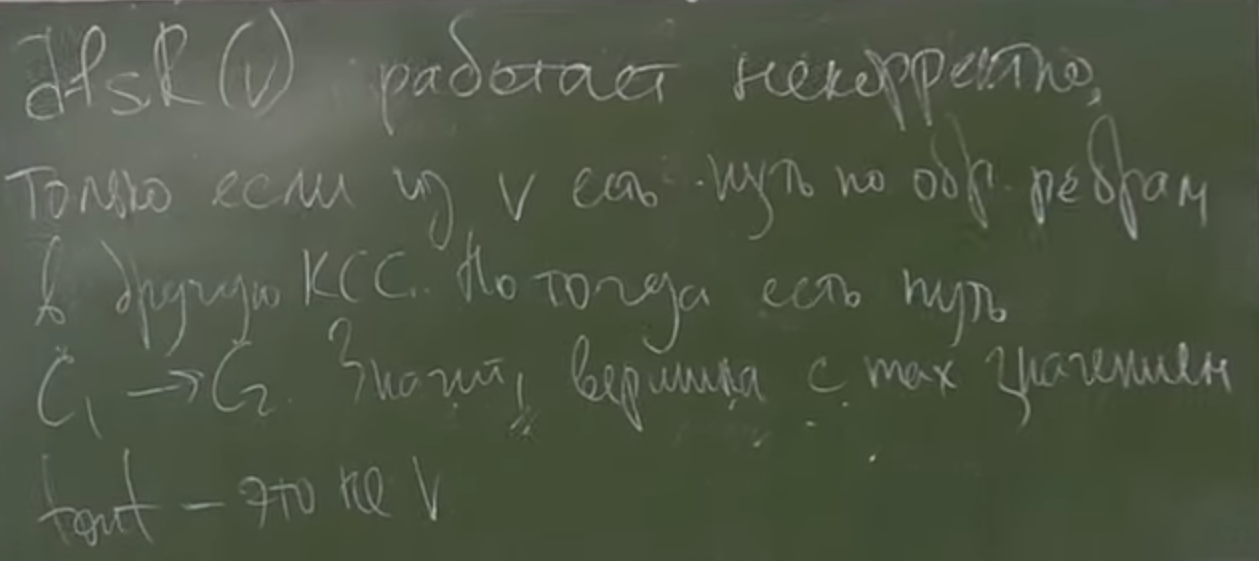 dfsR(v) работает некорректно,
только если из v есть путь по обр. рёбрам
в другую КСС. Но тогда есть путь
C₁ → C₂. Значит, вершина с max значением
tout – это не v